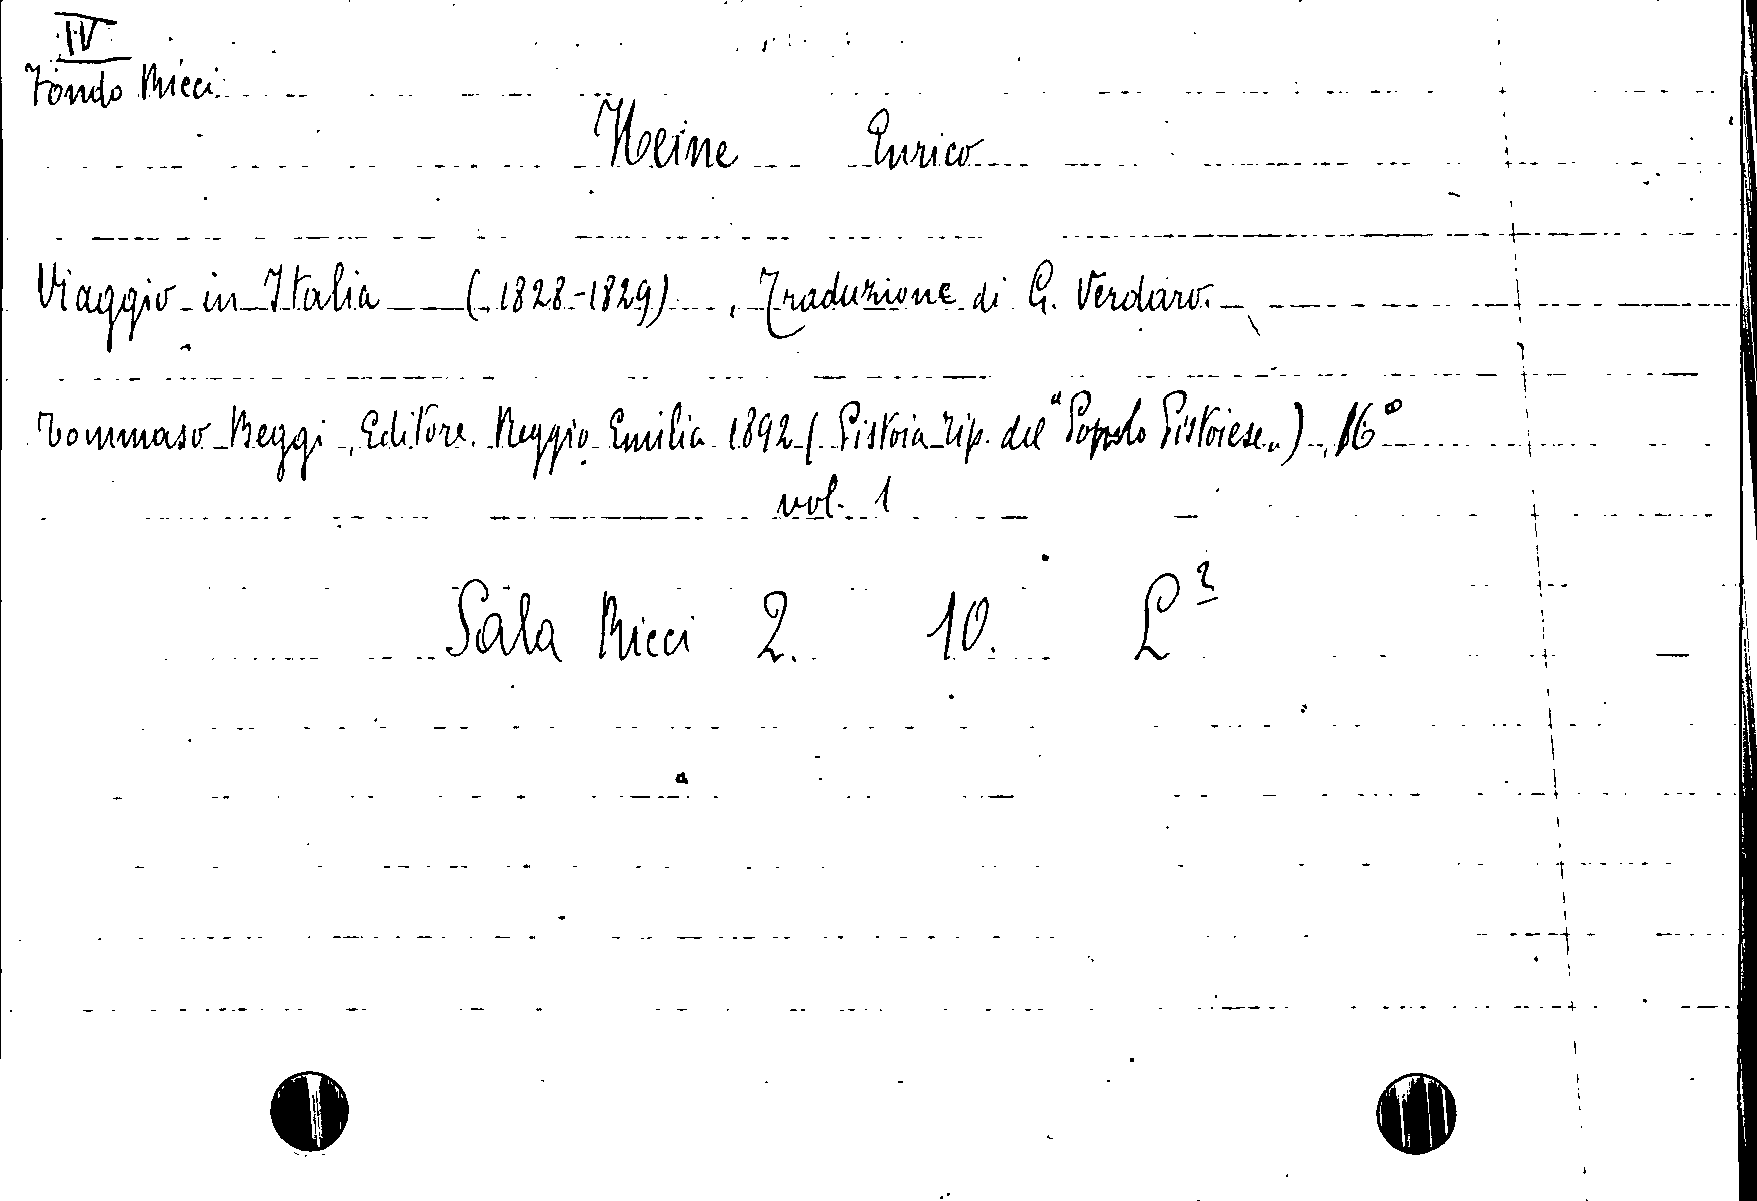 IV
Fondo Ricci
Heine Enrico
Viaggio in Italia (1828-1829), Traduzione di G. Verdaro.
Tommaso Beggi, Editore. Reggio Emilia 1892 (Pistoia tip. del "Popolo Pistoiese„), 16°
vol. 1
Sala Ricci 2. 10. L²